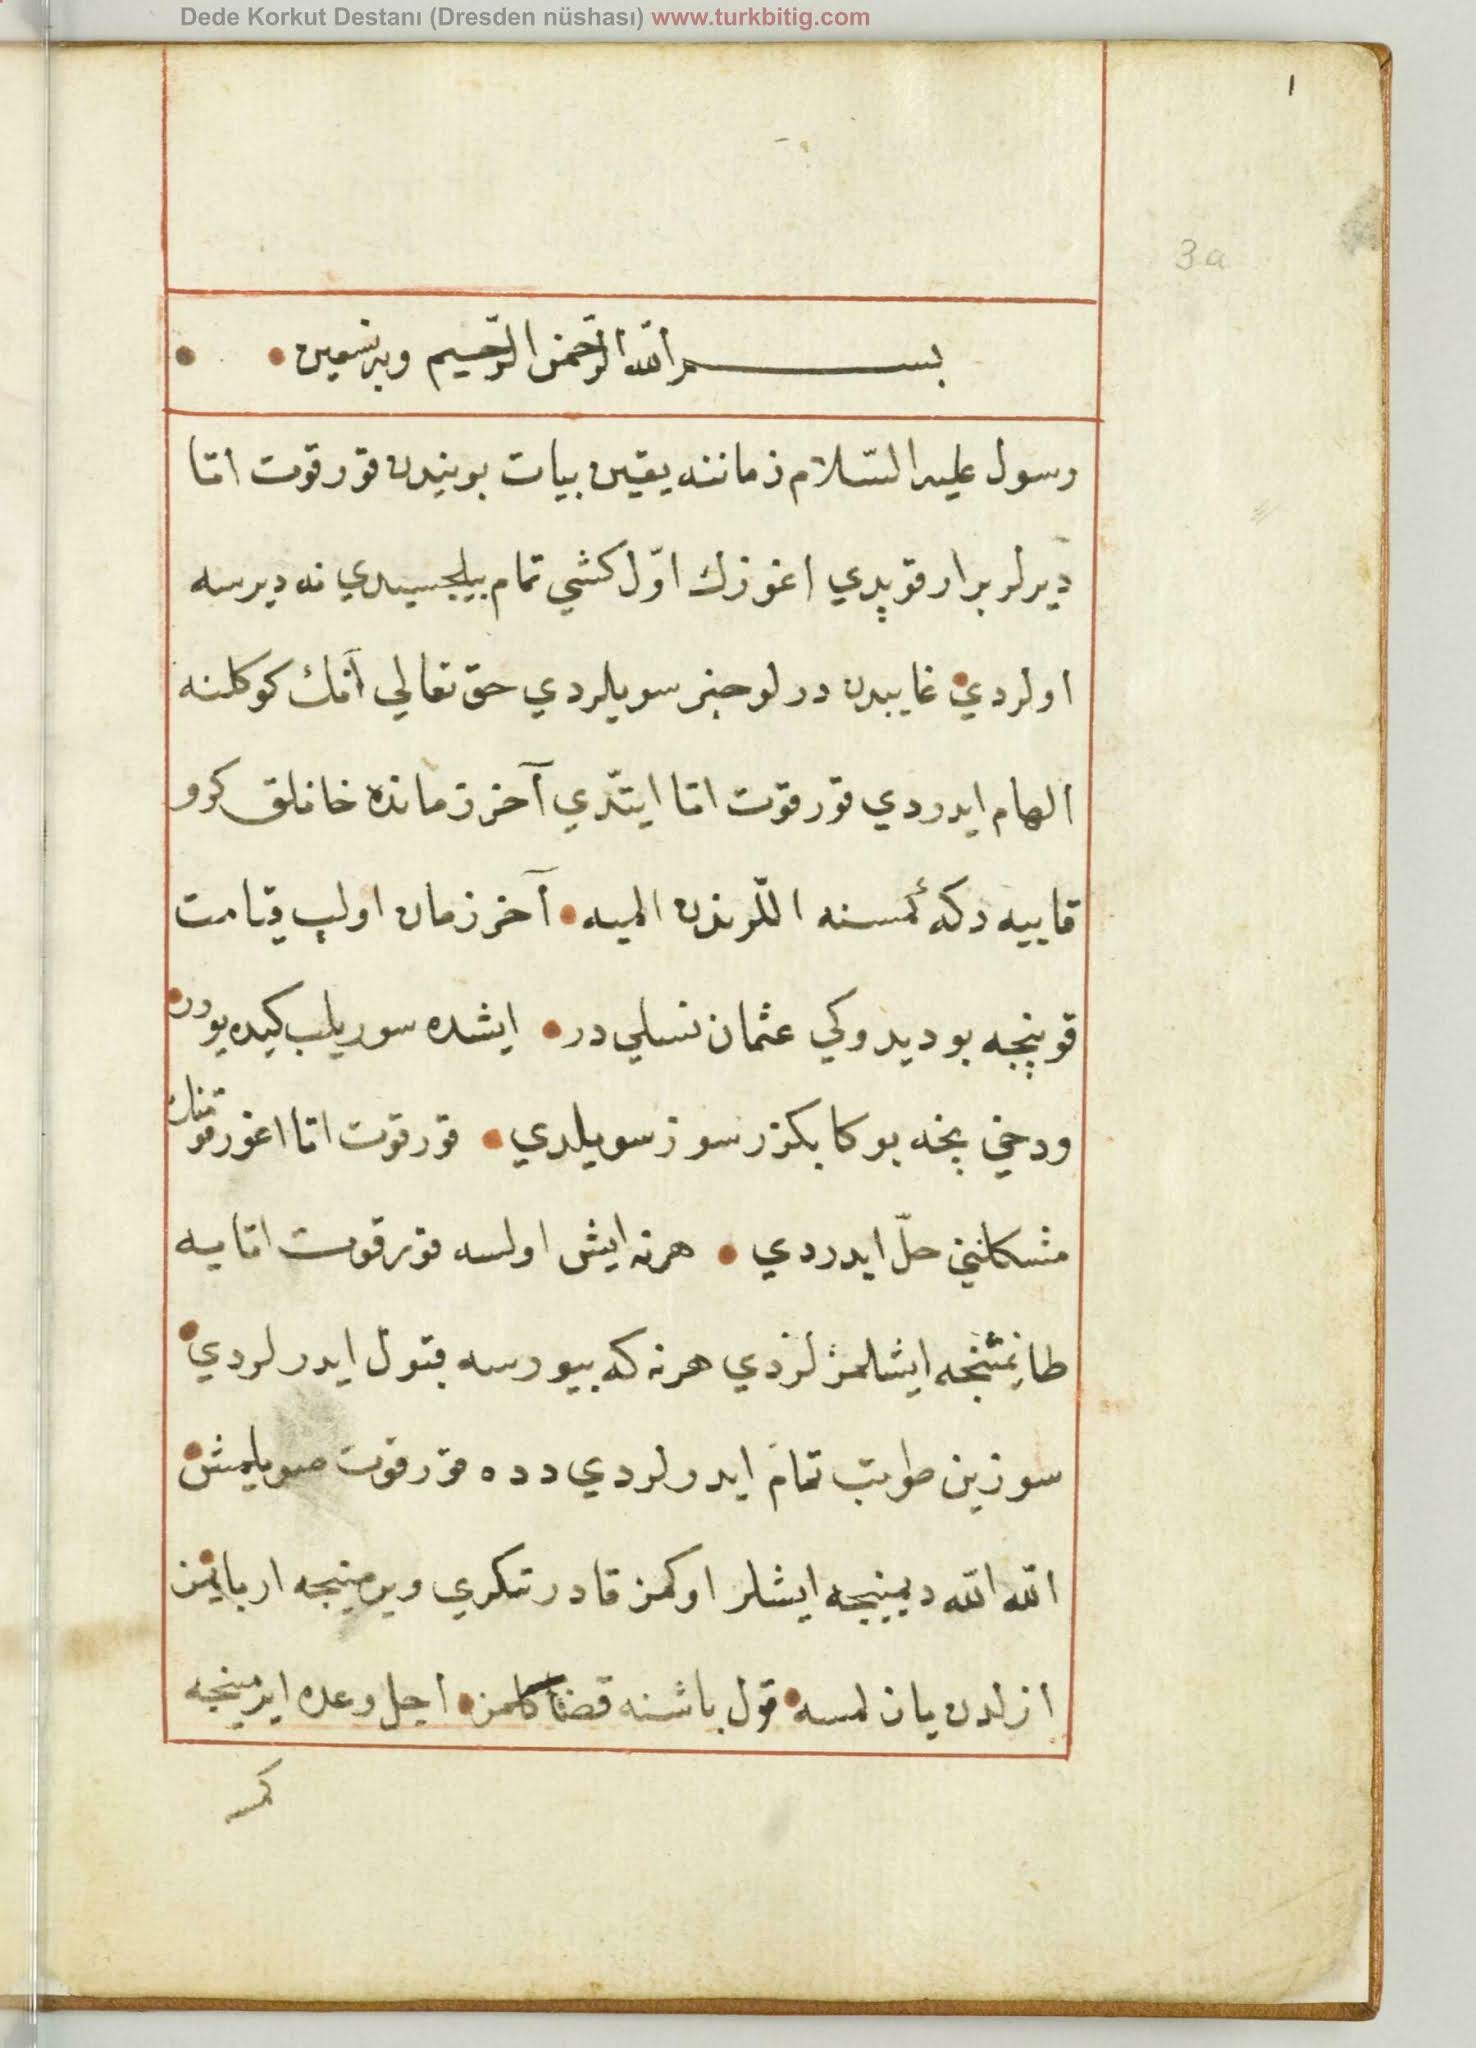 Dede Korkut Destanı (Dresden nüshası) www.turkbitig.com
١
3a
بسم الله الرّحمن الرّحيم وبه نستعين
رسول عليه السّلام زماننه يقين بيات بويندن قورقوت اتا
ديرلر بر ار قوپدي اغوزك اوّل كشي تمام بيلجسيدي نه ديرسه
اولردي غايبدن درلو خبر سويلردي حق تعالي آنك كوكلنه
الهام ايدردي قورقوت اتا ايتدي آخر زمانده خانلق كرو
قاييه دكه كمسنه اللرندن الميه آخر زمان اولپ قيامت
قوپنچه بو ديدوكي عثمان نسلي در ايشده سوريلب كيده يورر
ودخي نچه بوكا بكزر سوز سويلدي قورقوت اتا اغوز قومنك
مشكلنی حلّ ايدردي هرنه ايش اولسه قورقوت اتايه
طانيشمينجه ايشلمزلردي هرنه كه بيورسه قبول ايدرلردي
سوزين طوتب تمام ايدرلردي دده قورقوت صويلمش
الله الله ديمينجه ايشلر اوكمز قادر تنكري ويرمينجه ار بايمز
ازلدن يازلمسه قول باشنه قضا كلمز اجل وعده ايرمينجه
كمسه